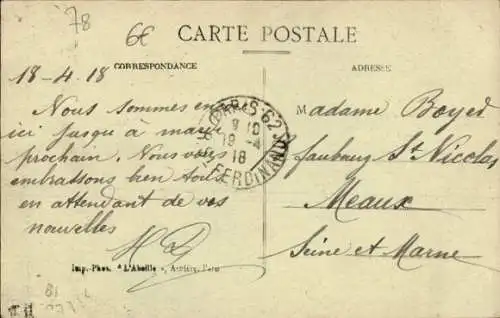 78
6€
CARTE POSTALE
CORRESPONDANCE
ADRESSE
18-4.18
Nous sommes en
ici jusqu'à mardi
prochain. Nous vous
embrassons bien tous
en attendant de vos
nouvelles
PARIS 62
9 10
19-4
18
R. ST FERDINAND
Madame Boyer
faubourg St Nicolas
Meaux
Seine et Marne
Imp.-Phot. "L'Abeille", Asnière, Paris